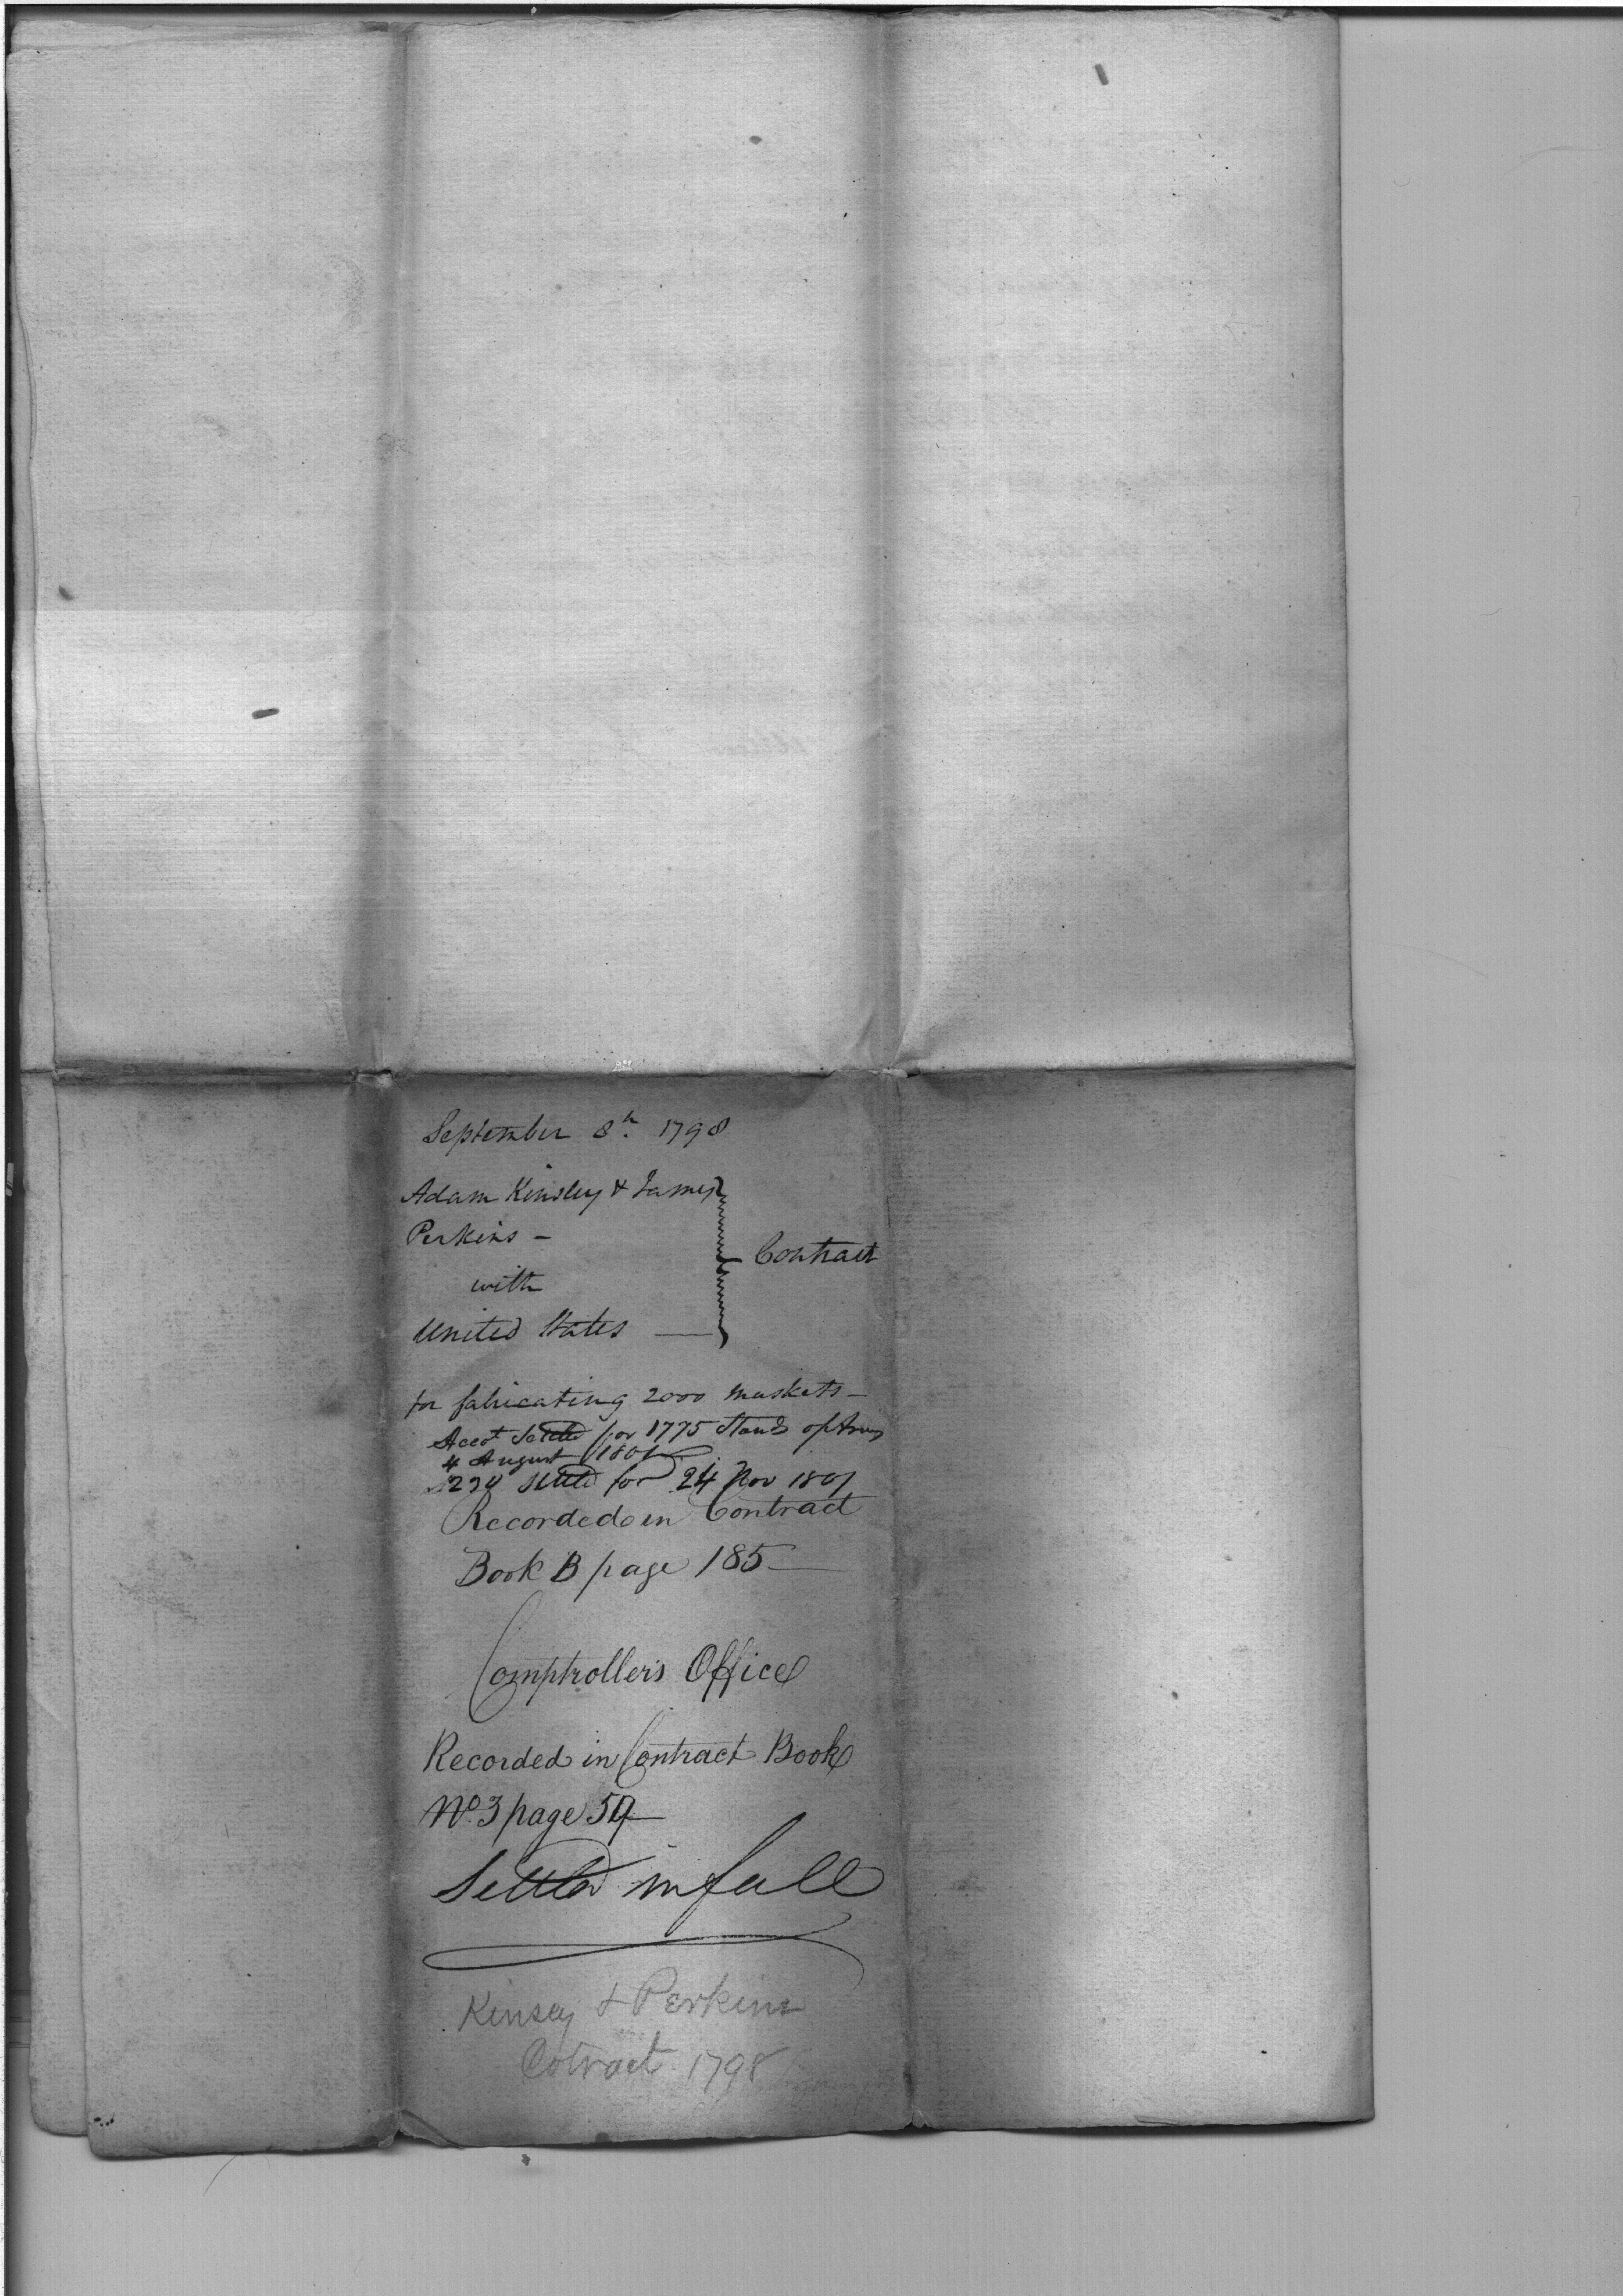 September 8th. 1798
Adam Kinsley & James
Perkins -
with
United States —
Contract
for fabricating 2000 muskets -
Accot Settled for 1775 Stand of Arms
4 August 1801
settled for 24 Nov 1801
Recorded in Contract
Book B page 185
Comptroller's Office
Recorded in Contract Book
No. 3 page
Settled in full
Kinsey & Perkins
Cotract 1798